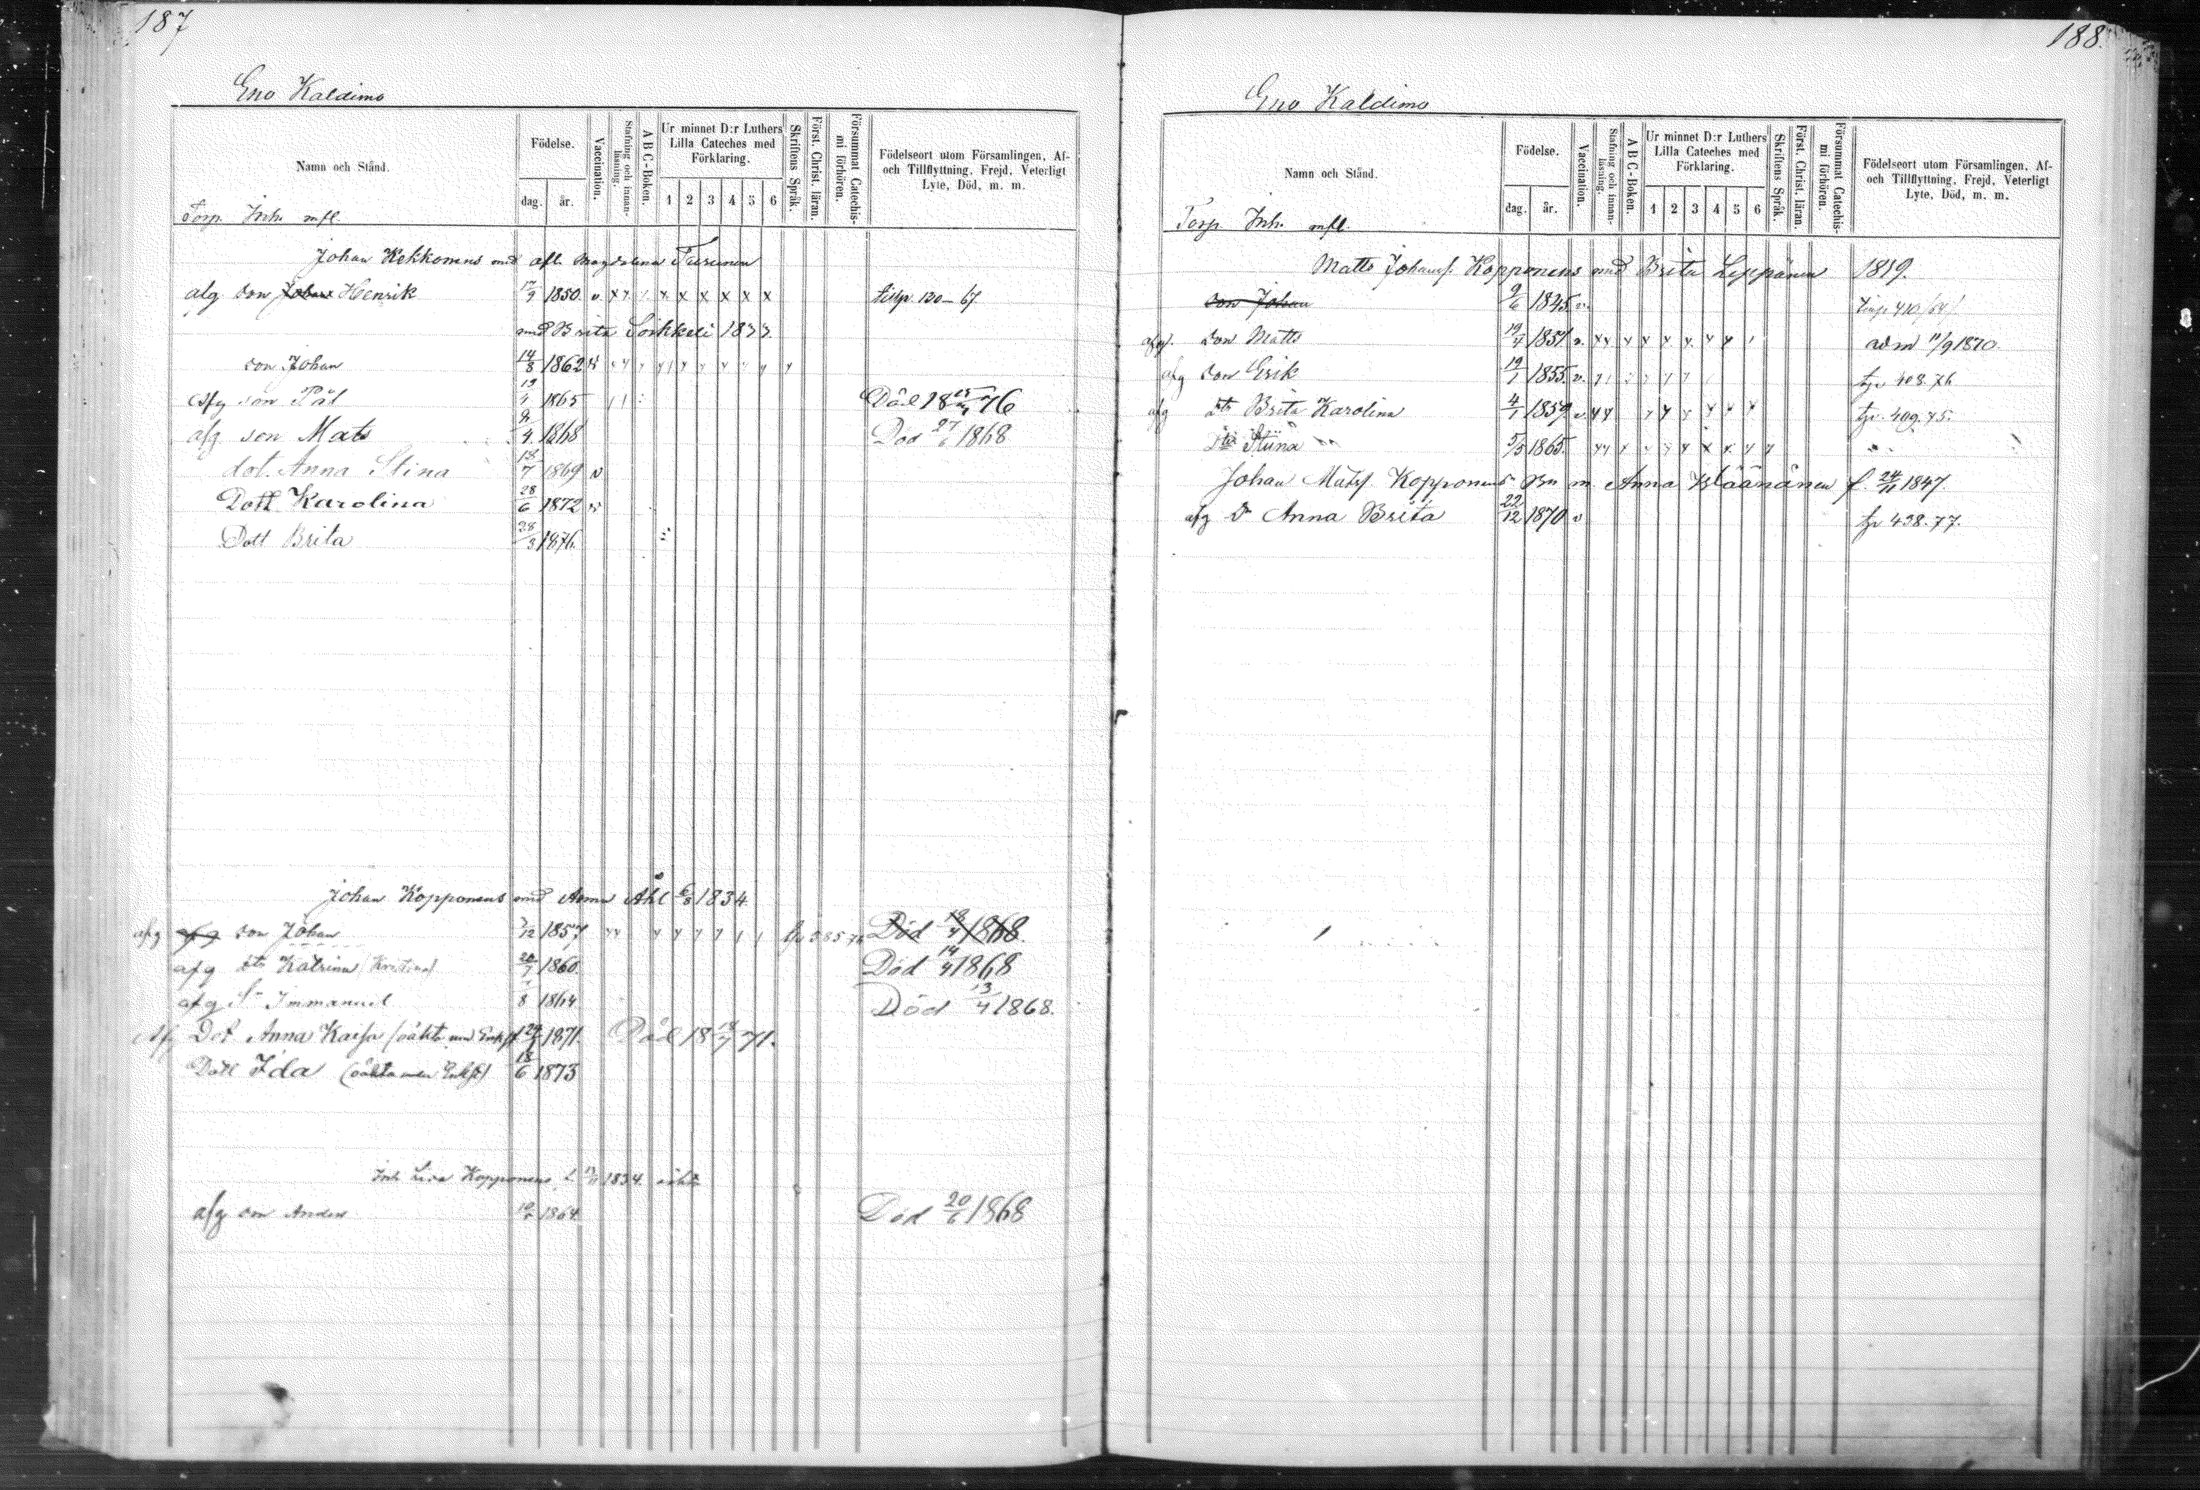 187
Eno Kaldimo
Namn och Stånd.
Födelse.
dag.
år.
Vaccination.
Stafning och innan-
läsning.
A B C-Boken.
Ur minnet D:r Luthers
Lilla Cateches med
Förklaring.
1 2 3 4 5 6
Skriftens Språk.
Först. Christ. läran.
Försummat Catechis-
mi förhören.
Födelseort utom Församlingen, Af-
och Tillflyttning, Frejd, Veterligt
Lyte, Död, m. m.
Torp. Inh. mfl.
Johan Kekkonens med afl. Magdalena Turunen
afg son Johan Henrik 9 1850. v. x x x x x x x x 130-67
med Brita Soikkeli 1833.
son Johan 14/8 1862
afg son Pål 1865 Död 18 76
afg son Mats 4 1868 Död 27/6 1868
dot. Anna Stina 18/7 1869 v
Dott Karolina 28/6 1872 v
Dott Brita 28/3 1876.
Johan Kopponens med Anna Ahl 6/8 1834
afg afg son Johan 12 1857 Död 18/4 1868.
afg dtr Katrina (Kristina) 1860. Död 14/4 1868
afg Sn Immanuel 8 1864 Död 13/4 1868.
Af Dot Anna Kaisa 1871. Död 18 71.
Dott Ida 18/6 1873
Inh Lisa Kopponens 1834
afg son Anders 1864 Död 20/6 1868
188.
Eno Kaldimo
Namn och Stånd.
Födelse.
dag.
år.
Vaccination.
Stafning och innan-
läsning.
A B C-Boken.
Ur minnet D:r Luthers
Lilla Cateches med
Förklaring.
1 2 3 4 5 6
Skriftens Språk.
Först. Christ. läran.
Försummat Catechis-
mi förhören.
Födelseort utom Församlingen, Af-
och Tillflyttning, Frejd, Veterligt
Lyte, Död, m. m.
Torp Inh. mfl.
Matts Johanss. Kopponens med Brita Leppänen 1819.
son Johan 9/6 1845 v.
afg. son Matts 19/4 1851 v. 11/9 1870.
afg son Erik 19/1 1855. v. 408.76
afg dtr Brita Karolina 4/1 1859 v. 409.75.
Stiina 5/5 1865.
Johan Matss. Kopponens m Anna Väänänen f. 24/11 1847.
afg Dr Anna Brita 22/12 1870 v 438.77.